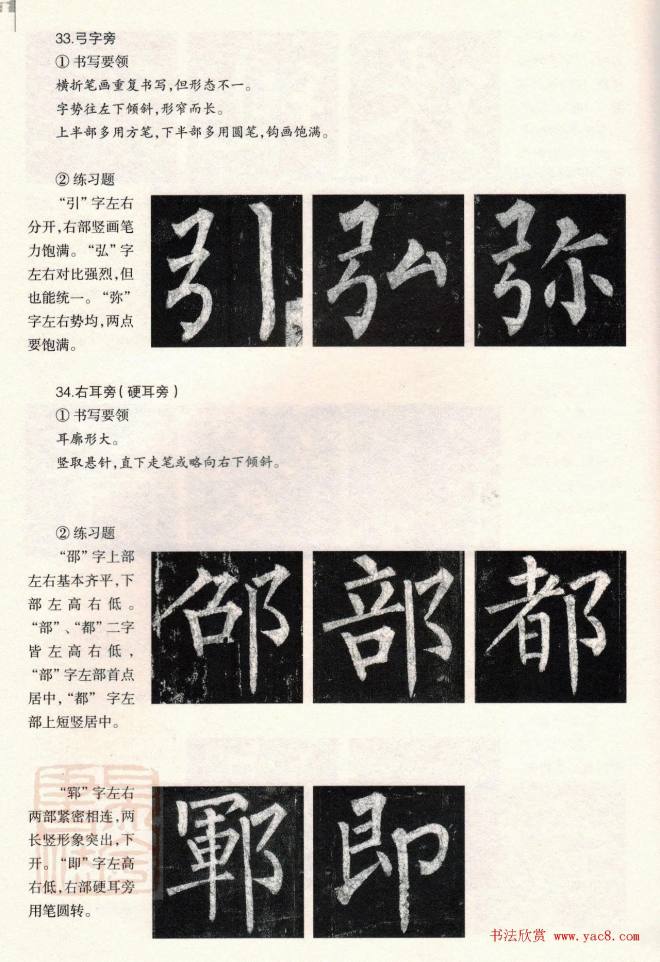 33.弓字旁
①书写要领
横折笔画重复书写,但形态不一。
字势往左下倾斜,形窄而长。
上半部多用方笔,下半部多用圆笔,钩画饱满。
②练习题
“引”字左右
分开,右部竖画笔
力饱满。“弘”字
左右对比强烈,但
也能统一。“弥”
字左右势均,两点
要饱满。
引 弘 弥
34.右耳旁(硬耳旁)
①书写要领
耳廓形大。
竖取悬针,直下走笔或略向右下倾斜。
②练习题
“邵”字上部
左右基本齐平,下
部左高右低。
“部”、“都”二字
皆左高右低,
“部”字左部首点
居中,“都”字左
部上短竖居中。
邵 部 都
“郓”字左右
两部紧密相连,两
长竖形象突出,下
开。“即”字左高
右低,右部硬耳旁
用笔圆转。
鄆 即
书法欣赏 www.yac8.com